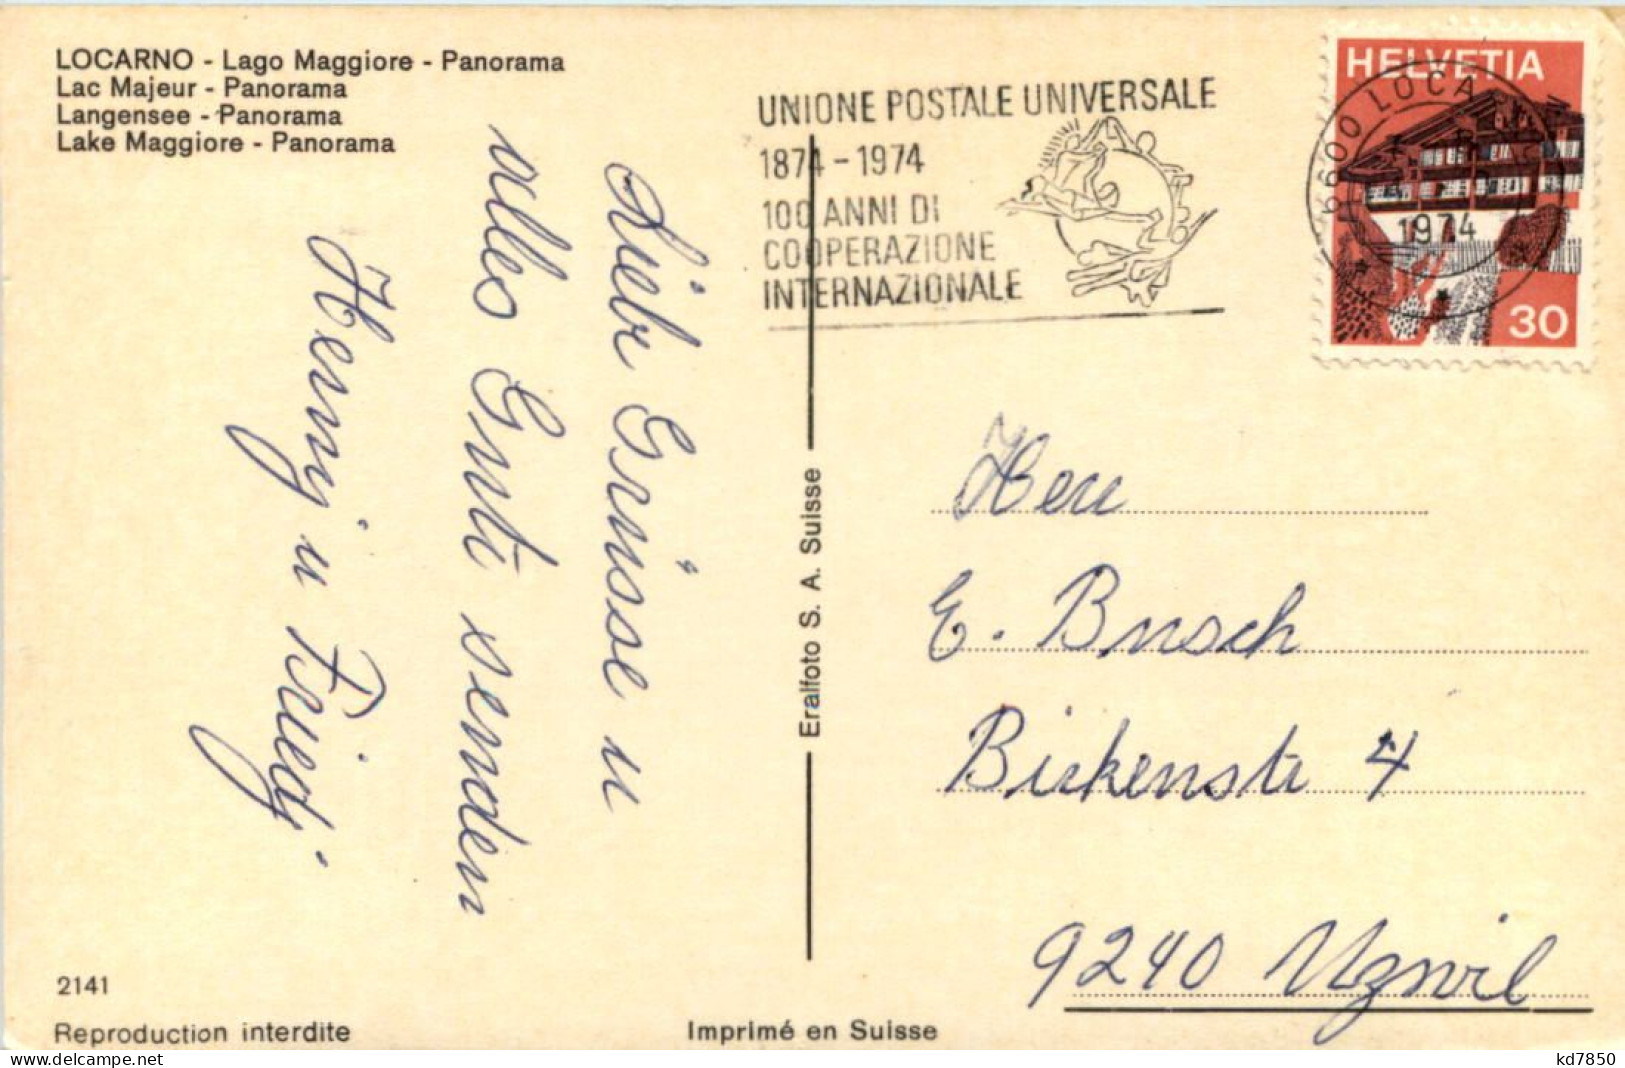 LOCARNO - Lago Maggiore - Panorama
Lac Majeur - Panorama
Langensee - Panorama
Lake Maggiore - Panorama
UNIONE POSTALE UNIVERSALE
1874 - 1974
100 ANNI DI
COOPERAZIONE
INTERNAZIONALE
HELVETIA
6600 LOCA
1974
30
Liebe Grüsse u
alles Gute senden
Henny u
Herr
E. Busch
Birkenstr 4
9240 Uzwil
Eralfoto S. A. Suisse
2141
Reproduction interdite
Imprimé en Suisse
www.delcampe.net
kd7850